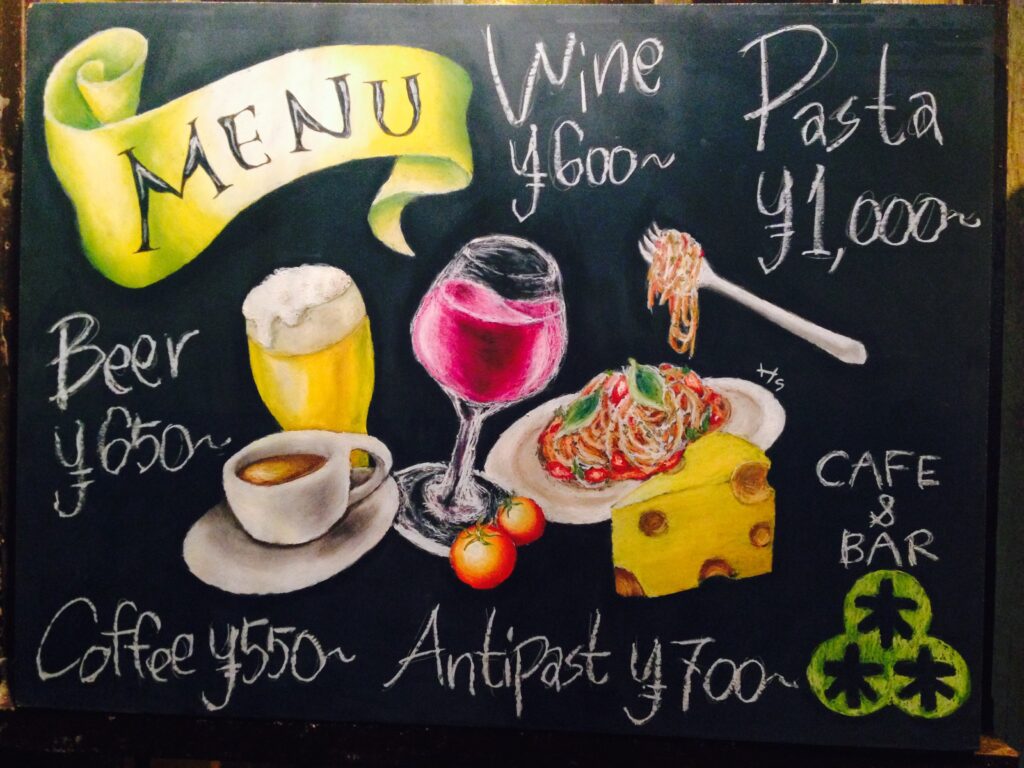 MENU
Wine
¥600~
Pasta
¥1,000~
Beer
¥650~
Hs
CAFE
&
BAR
木
木木
Coffee ¥550~
Antipast ¥700~